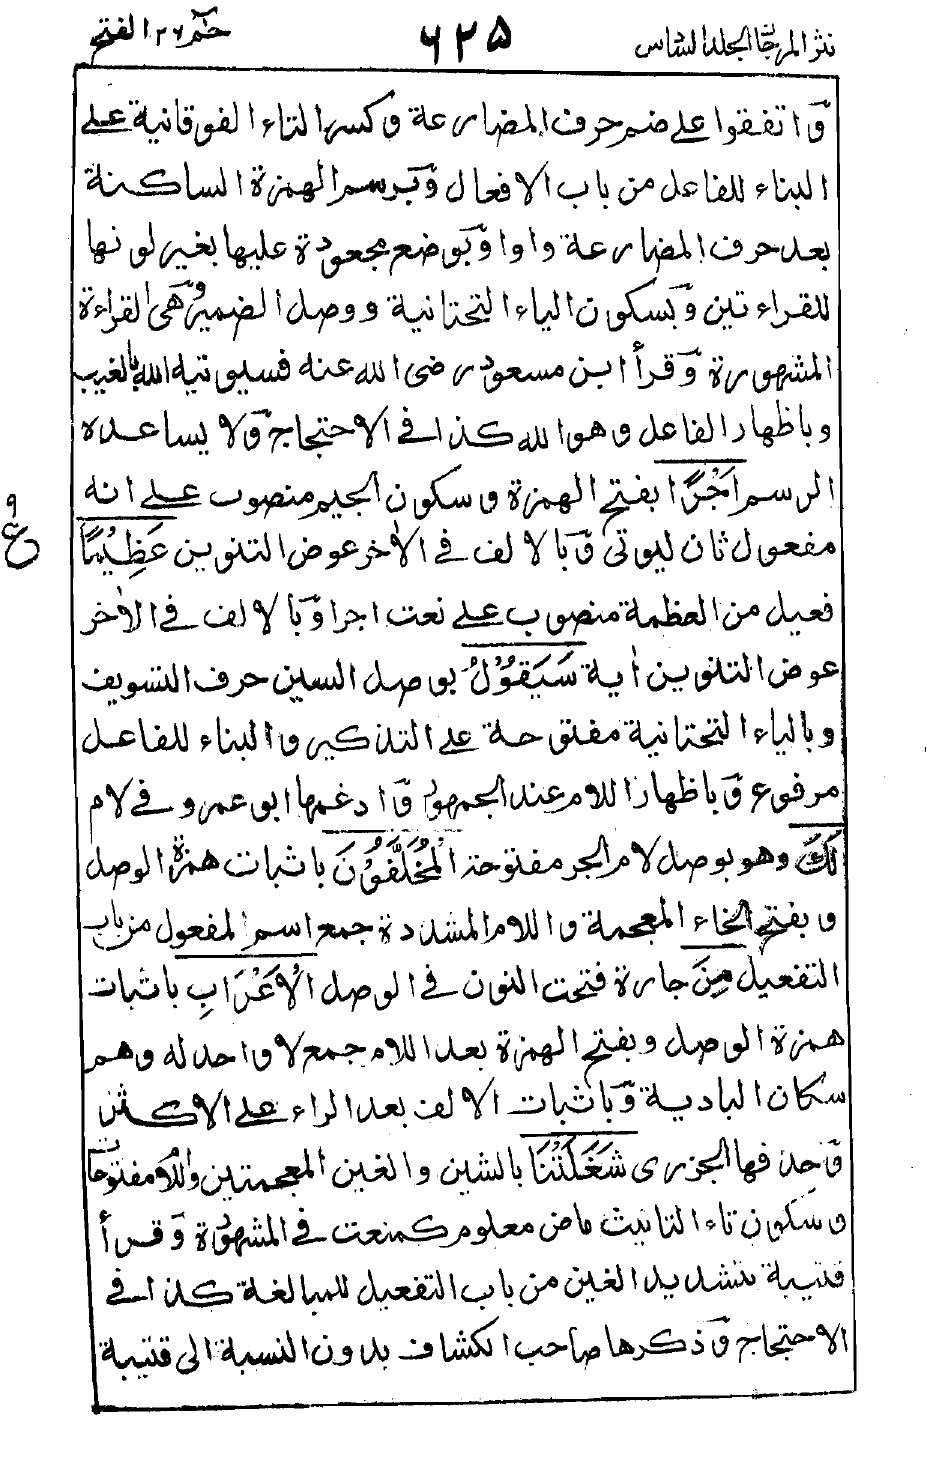 نثر المرجان الجلد السادس ۶۲۵ حٰمٓ ۲۶ الفتح
وَاتفقوا علے ضم حرف المضارعة وكسر التاء الفوقانية علے
البناء للفاعل من باب الافعال وَبرسم الهمزة الساكنة
بعد حرف المضارعة واوا وَبوضع مجعودة عليها بغير لونها
للقراءتين وَبسكون الياء التحتانية ووصل الضمير وَهى القراءة
المشهورة وَقرأ ابن مسعود رضى الله عنه فسيوتيه الله بالغيب
وباظهار الفاعل وهو الله كذا فے الاحتجاج وَلا يساعده
الرسم اَجْرًا بفتح الهمزة وسكون الجيم منصوب علے انه
مفعول ثان ليوتى وَبالالف فے الاٰخر عوض التنوين عَظِيْمًا
فعيل من العظمة منصوب علے نعت اجرا وَبالالف فے الاٰخر
عوض التنوين اٰية سَيَقُوْلُ بوصل السين حرف التسويف
وبالياء التحتانية مفتوحة علے التذكير والبناء للفاعل
مرفوع وَباظهار اللام عند الجمهور وَادغمها ابو عمرو فے لام
لَكَ وهو بوصل لام الجر مفتوحة الْمُخَلَّفُوْنَ باثبات همزة الوصل
وبفتح الخاء المعجمة واللام المشددة جمع اسم المفعول من باب
التفعيل مِنَ جارة فتحت النون فے الوصل الْاَعْرَابِ باثبات
همزة الوصل وبفتح الهمزة بعد اللام جمع لا واحد له وهم
سكان البادية وَباثبات الالف بعد الراء علے الاكثر
وَحذفها الجزرى شَغَلَتْنَا بالشين والغين المعجمتين واللام مفتوحات
وسكون تاء التانيث ماض معلوم كمنعت فے المشهورة وَقرأ
قتيبة بتشديد الغين من باب التفعيل للمبالغة كذا فے
الاحتجاج وَذكرها صاحب الكشاف بدون النسبة الى قتيبة
۹
ع